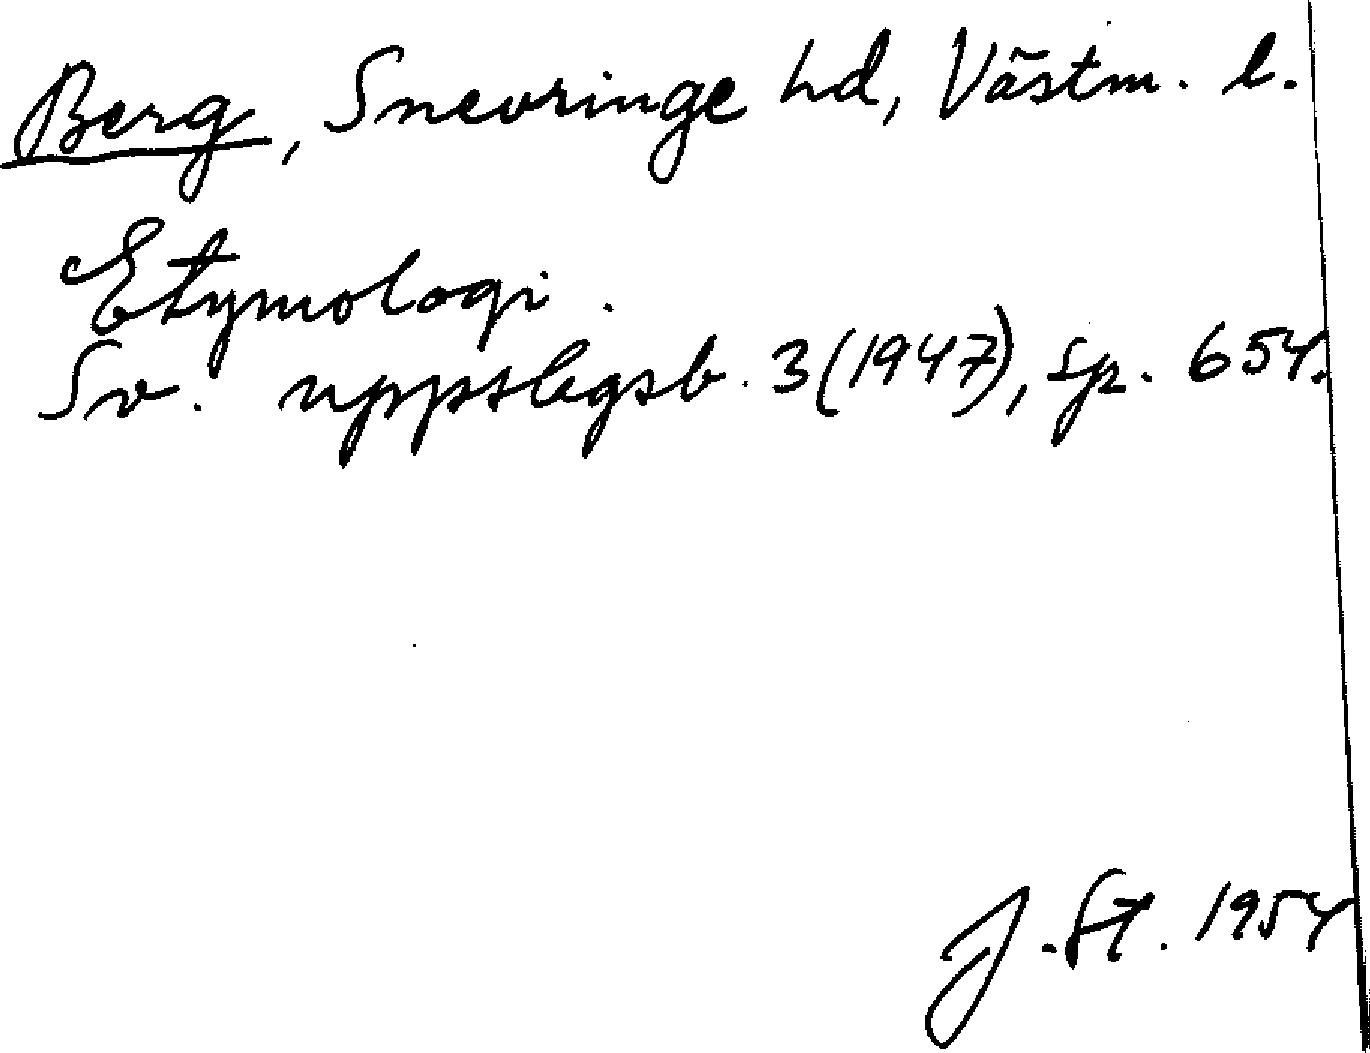 Berg, Snevringe hd, Västm. l.
Etymologi.
Sv. uppslagsb. 3 (1947), sp. 654.
J. St. 1954